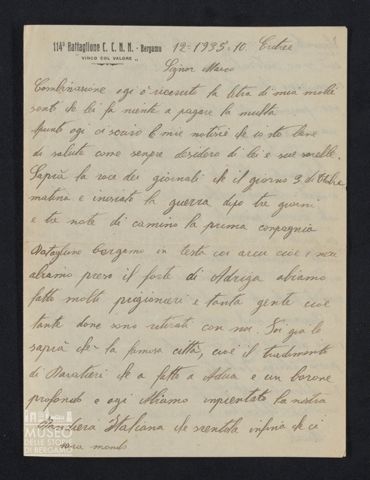 114ª Battaglione C. C. N. N. - Bergamo
VINCO COL VALORE „
12-1935-10. Eritrea
Signor Marco
Combinasione ogi ó ricevuto la letra di mia molie
sento che lei fa niente a pagare la multa
ogi ci scrivo le mie notisie che io sto bene
di salute come sempre desidero di lei e sue sorelle.
Sapirà la voce dei giornali che il giorno 3 di
matina e inisiato la guerra dopo tre giorni
e tre note di camino la prima conpagnia
Bataglione Bergamo in testa cioe noi
abiamo preso il forte di abiamo
fatto molti prigionieri e tanta gente cioe
tante done sono ritirati con noi. Poi già lo
saprà che la famosa città, cioè il tradimento
di Baratieri che a fatto a Adua e un
profondo e ogi abiamo inpientato la nostra
Bandiera Italiana che sventola infina che ci
sara mondo
MUSEO
DELLE STORIE
DI BERGAMO